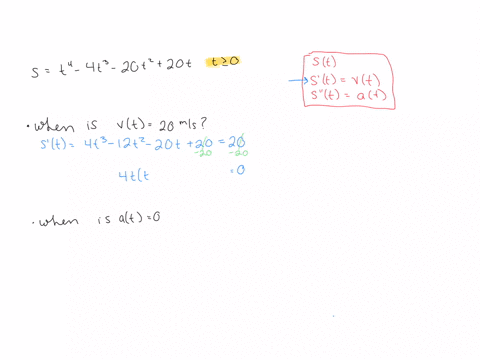 S = t⁴ - 4t³ - 20t² + 20t   t ≥ 0
S(t)
→ S'(t) = v(t)
S"(t) = a(t)
• when is v(t) = 20 m/s?
S'(t) = 4t³ - 12t² - 20t + 20 = 20
-20 -20
4t(t = 0
• when is a(t) = 0